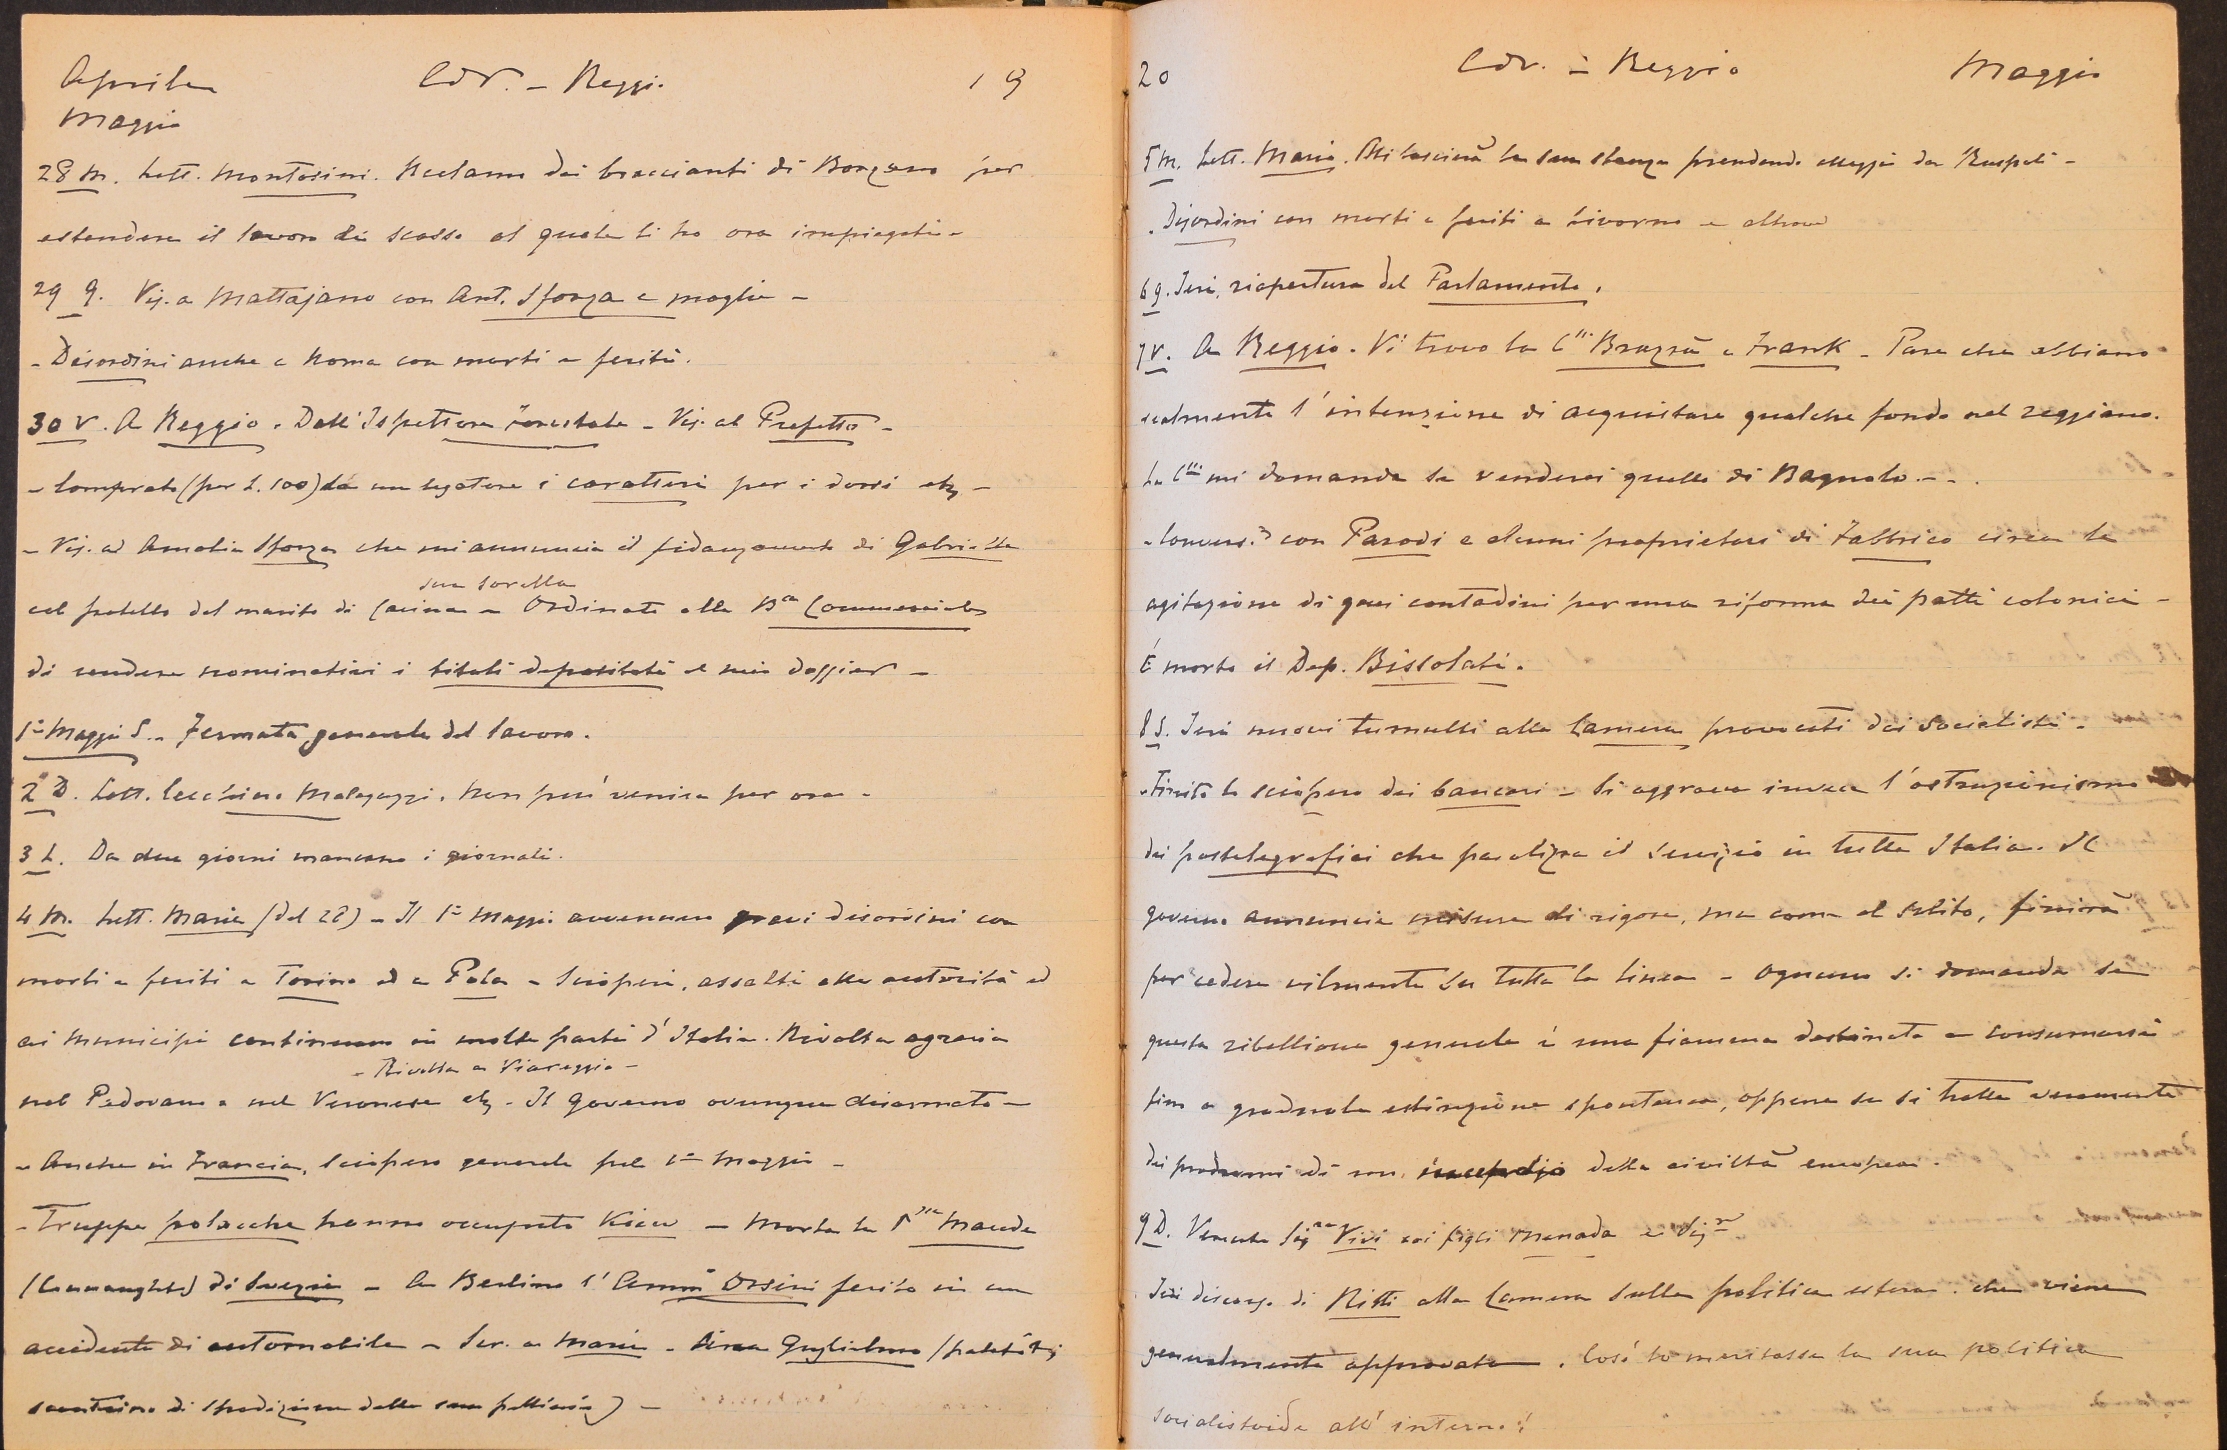 Aprile Cdr. - Reggio 19
Maggio
28 M. Lett. Montosini. Reclamo dei braccianti di Borzano per
estendere il lavoro di scasso al quale li ho ora impiegati -
29 G. Vis. a Mattajano con Ant. Sforza e moglie -
- Disordini anche a Roma con morti e feriti.
30 V. A Reggio. Dall'Ispettore forestale - Vis. al Prefetto -
- Comprato (per L. 100) da un legatore i caratteri per i dorsi etz -
- Vis. ad Amalia Sforza che mi annuncia il fidanzamento di Gabriella
sua sorella
col fratello del marito di - Ordinato alla Bca Commerciale
di rendere nominativi i titoli depositati al mio dossier -
1° Maggio S. - Fermata generale del lavoro.
2 D. Lett. Malaguzzi. Non può venire per ora -
3 L. Da due giorni mancano i giornali.
4 M. Lett. Maria (del 28) - Il 1° Maggio avvennero gravi disordini con
morti e feriti a Torino ed a Pola - Scioperi, assalti alle autorità ed
ai municipi continuano in molte parti d'Italia. Rivolta agraria
- Rivolta a Viareggio -
nel Padovano e nel Veronese etz - Il governo ovunque disarmato -
- Anche in Francia, sciopero generale pel 1° Maggio -
- Truppe polacche hanno occupato Kiew - Morta la Pssa Maude
(Connaught) di Svezia - A Berlino l'Amm° Orsini ferito in un
accidente di automobile - Scr. a Maria - Guglielmo
scontrino di spedizione della sua pelliccia) -
20 Cdr. - Reggio Maggio
5 M. Lett. Maria. lascierà la sua stanza prendendo alloggio da Ruspoli -
. Disordini con morti e feriti a Livorno e altrove
6 G. Ieri, riapertura del Parlamento.
7 V. A Reggio. Vi trovo la Cssa Brazzà e Frank - Pare che abbiano
realmente l'intenzione di acquistare qualche fondo nel reggiano.
La Cssa mi domanda se venderei quello di Bagnolo - - .
- Convers.e con Parodi e alcuni proprietari di Fabbrico circa la
agitazione di quei contadini per una riforma dei patti colonici -
É morto il Dep. Bissolati.
8 S. Ieri nuovi tumulti alla Camera provocati dai socialisti -
- Finito lo sciopero dei bancari - Si aggrava invece l'ostruzionismo
dei postelegrafici che paralizza il servizio in tutta Italia. Il
governo annuncia misure di rigore, ma come al solito, finirà
per cedere vilmente su tutta la linea - Ognuno si domanda se
questa ribellione generale è una fiamma destinata a consumarsi
fino a graduale estinzione spontanea, oppure se si tratta veramente
dei prodromi di un incendio della civiltà europea.
9 D. Venuta Sigra Vivi coi figli Menada e
Ieri discorso di Nitti alla Camera sulla politica estera che viene
generalmente approvata. Così lo meritasse la sua politica
socialistoide all'interno!